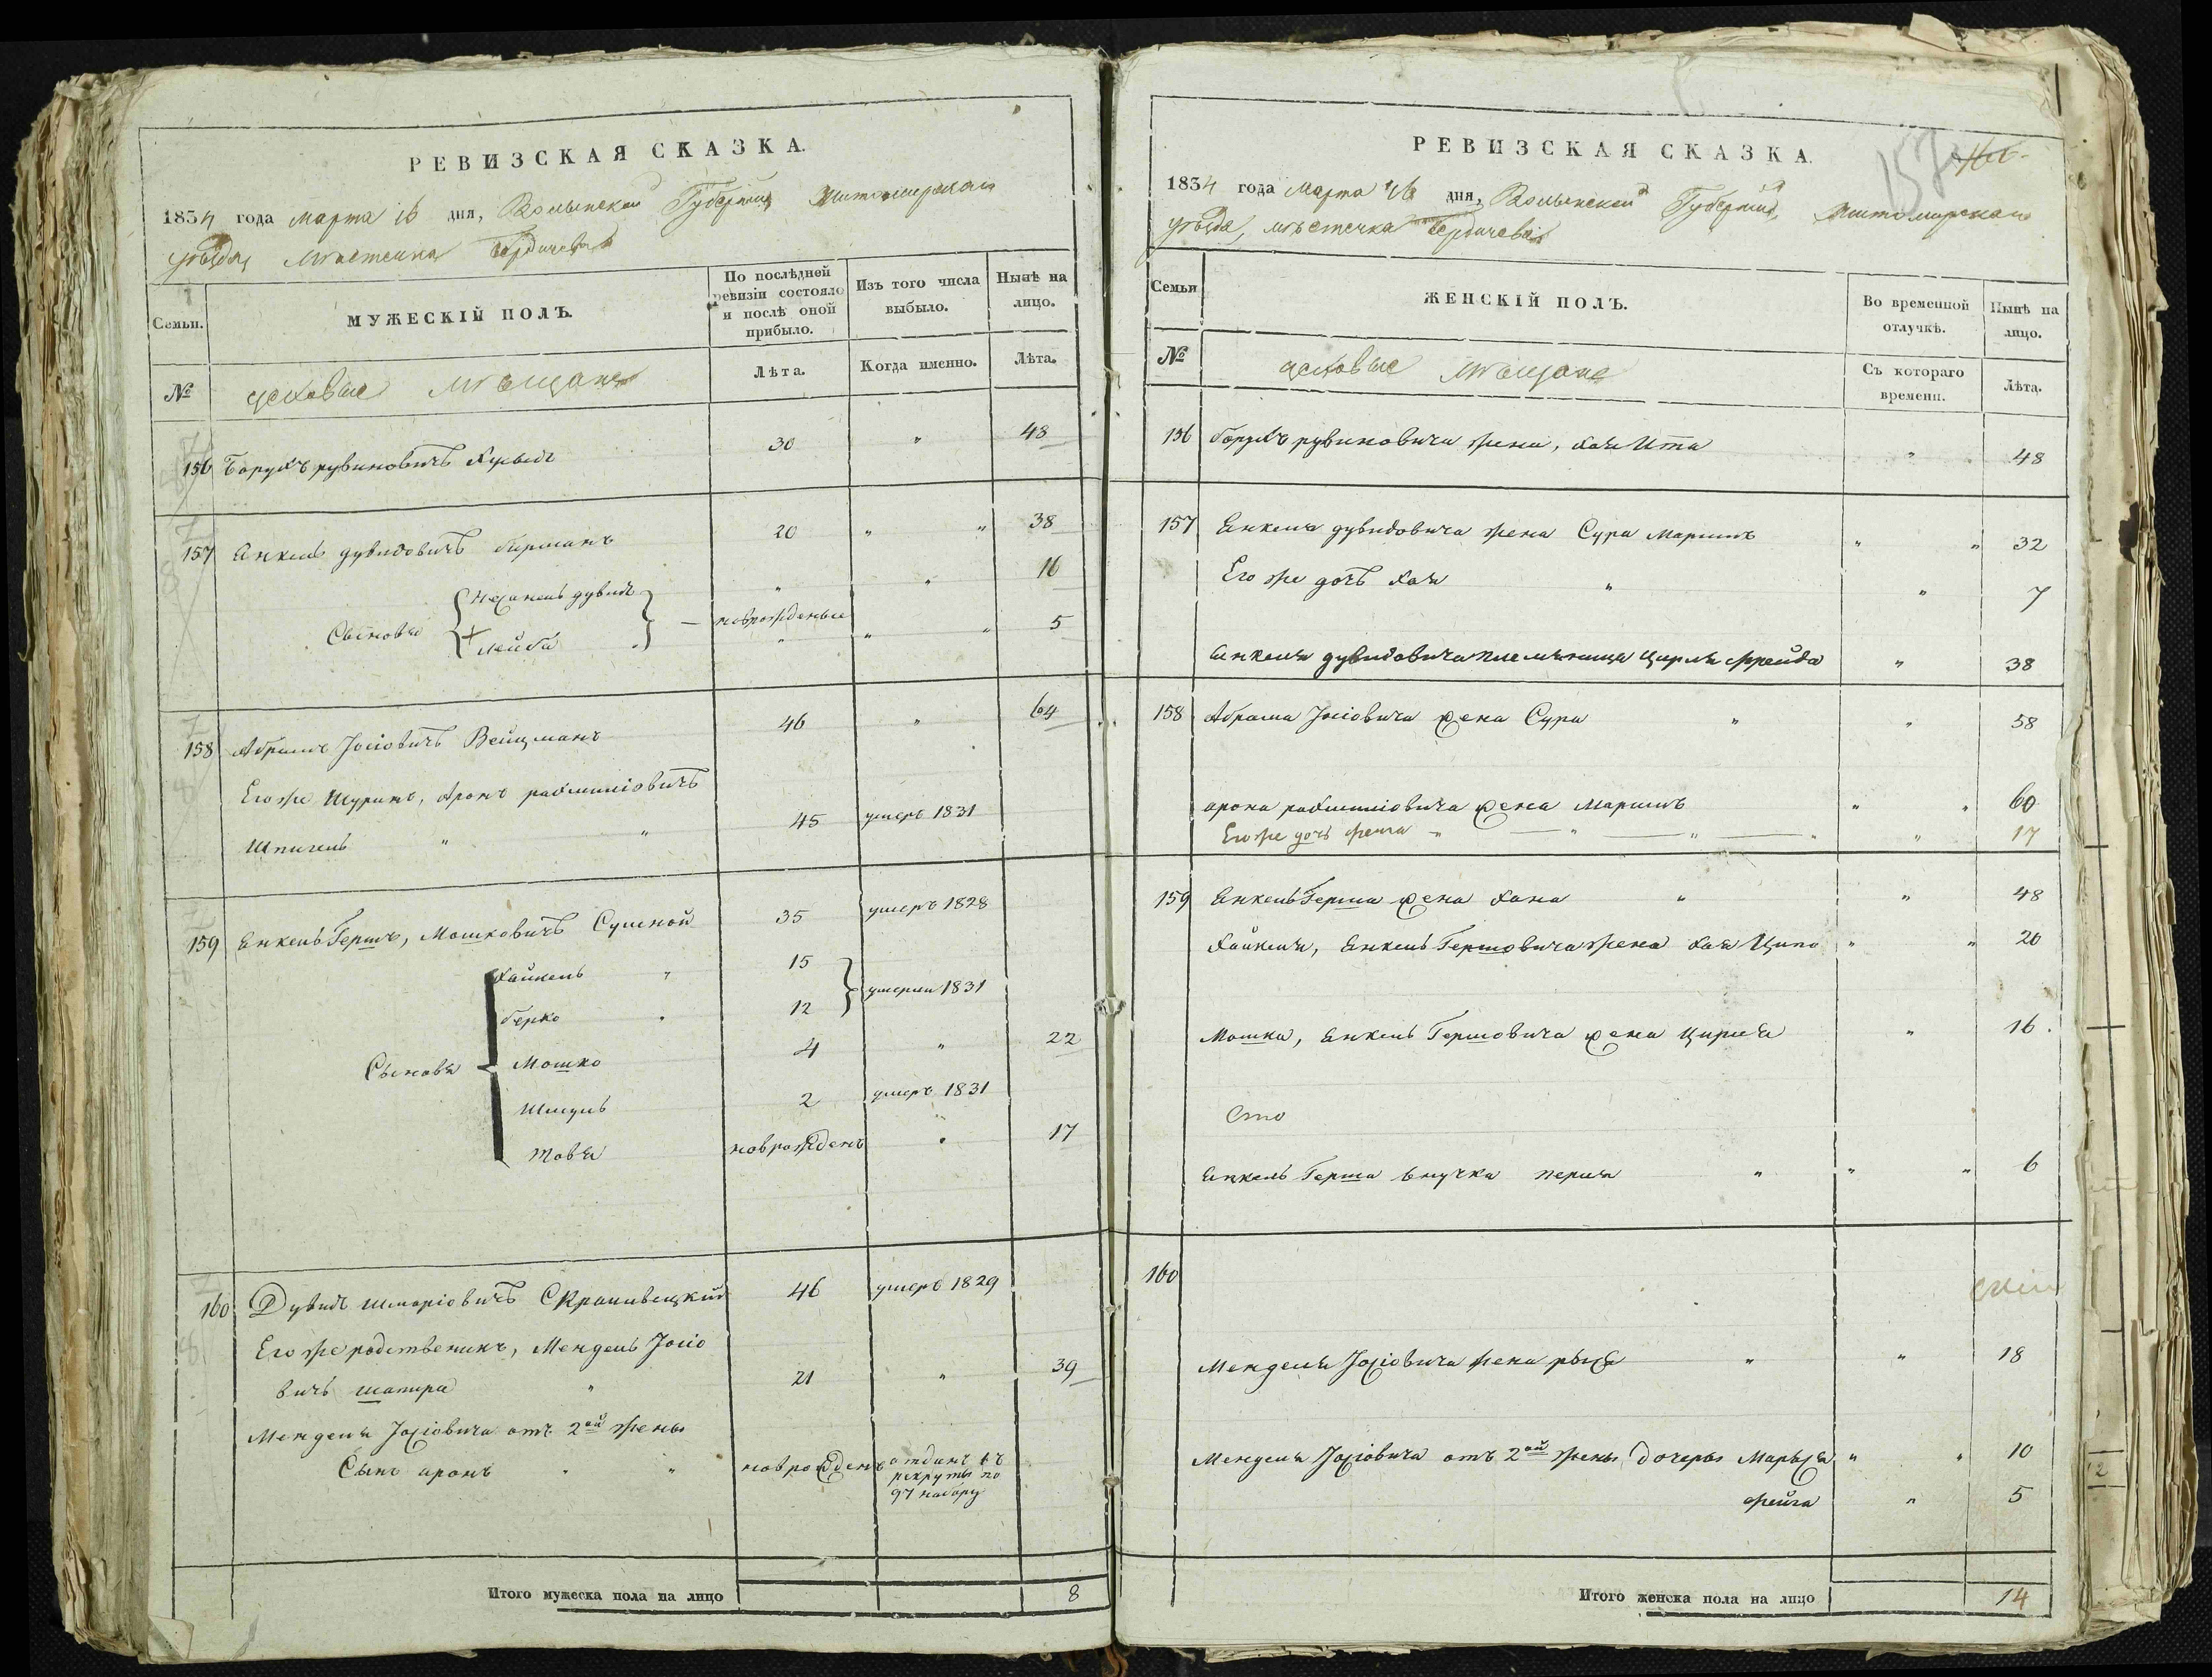 РЕВИЗСКАЯ СКАЗКА.
1834 года марта 16 дня, Волынской Губерніи, Житомирскаго
уѣзда, мѣстечка Бердичева
Семьи.
МУЖЕСКІЙ ПОЛЪ.
По послѣдней ревизіи состояло и послѣ оной прибыло.
Изъ того числа выбыло.
Нынѣ на лицо.
№
цеховые мѣщане
Лѣта.
Когда именно.
Лѣта.
156 Борухъ рувиновичъ 30 " 48
157 Янкель дувидовичъ 20 " " 38
Сыновья { Нехемель дувидъ } " " 16
новрожденые
+ лейба " " " 5
158 Абрамъ Іосіовичъ Вейцманъ 46 " 64
Его же Шуринъ, Аронъ рахмиліовичъ
Шпигель " " 45 умеръ 1831
159 Янкель Гершъ, Мошковичъ Сумной 35 умеръ 1828
Хайкель " 15
берко " 12 } умерли 1831
Сыновья { Мошко 4 " 22
Шмуль 2 умеръ 1831
Товья новрожденъ " 17
160 Дувидъ Шмаріовичъ 46 умеръ 1829
Его же родственикъ, Мендель Іосіо
вичъ шапира " 21 " 39
Менделя Іосіовича отъ 2ой жены
Сынъ аронъ " " новрожденъ отданъ въ
рекруты по
97 набору
Итого мужеска пола на лицо 8
РЕВИЗСКАЯ СКАЗКА.
157
1834 года Марта 16 дня, Волынской Губерніи, Житомирскаго
уѣзда, мѣстечка Бердичева
Семьи
ЖЕНСКІЙ ПОЛЪ.
Во временной отлучкѣ.
Нынѣ на лицо.
№
цеховые мѣщане
Съ котораго времени.
Лѣта.
156 борухъ рувиновича жена, хая Ита " 48
157 Янкеля дувидовича жена Сура Маримъ " " 32
Его же дочь хая " " 7
Янкеля дувидовича племяница Цирля фрейда " 38
158 Абрама Іосіовича жена Сура " " 58
арона рахмиліовича жена Маримъ " " 60
Его же дочь фейга " " " " " 17
159 Янкель Герша жена хана " " 48
хайкеля, Янкель Гершовича жена хая Ципа " " 20
Мошка, Янкель Гершовича жена Цирля " 16.
Янкель Герша внучка перля " " " 6
160
Менделя Іосіовича жена рыся " " 18
Менделя Іосіовича отъ 2ой жены дочеры Марыся " " 10
фейга " 5
Итого женска пола на лицо 14